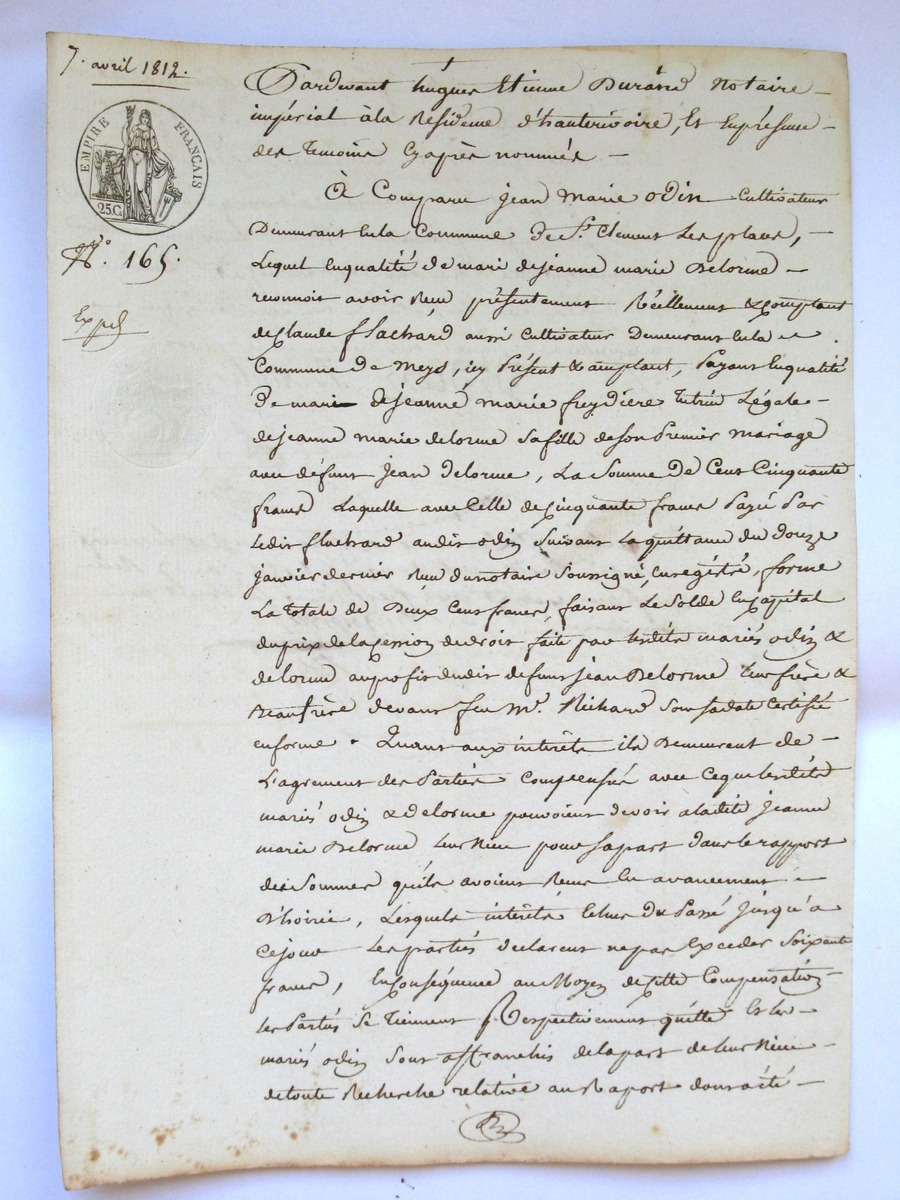 7. avril 1812.
EMPIRE FRANÇAIS
25.C.
N.° 165.
Expé
Pardevant hugues Etienne Durand Notaire
impérial à la Résidence d'hauterivoire, Et En présence
des temoins Cy après nommés
À Comparu jean Marie odin Cultivateur
Demeurant En la Commune De St. Clement Les places,
Lequel En qualité de mari de jeanne marie Delorme
reconnoit avoir Reçu, présentement Réellement & comptant
de Claude flachard aussi Cultivateur Demeurant En la
Commune De Meys, icy Présent & acceptant, Payant En qualité
De mari de jeanne marie freydiere tutrice Légale
de jeanne marie delorme Sa fille de Son Premier mariage
avec défunt jean delorme, La Somme De Cent Cinquante
francs Laquelle avec Celle de Cinquante francs Payée Par
Ledit flachard audit odin Suivant La quittance du Douze
janvier dernier Reçu du notaire Soussigné, Enregistré, forme
La totale de Deux Cent francs, faisant Le Solde En Capital
du prix de la Cession de droit faite par Lesdits mariés odin &
delorme au profit dudit defunt jean Delorme Leur frère &
Beaufrère devant feu Mr. Richard Sous Sa date Certifié
en forme. Quant aux intérêts ils Demeurent de
L'agrement des Parties Compensés avec Ce que Lesdits
mariés odin & delorme pouvoient devoir a ladite jeanne
marie Delorme Leur Niece pour Sa part Dans le rapport
des Sommes qu'ils avoient Reçues En avancement
D'hoirie, Lesquels intérêts Echus Du Passé jusqu'a
Ce jour Les parties declarent ne pas Exceder Soixante
francs, En Conséquence au Moyen de Cette Compensation
Les Parties Se Tiennent Respectivement quitte Et Les
mariés odin Sont affranchis de la part de leur Niece
de toute Recherche relative au Raport dont a été